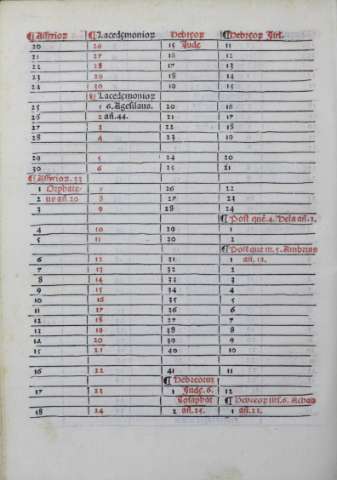 ¶ Assirios ¶ Lacedemonios Hebreos ¶ Hebreos Isrl.
20 26 15 Jude 11
21 27 16 12
22 28 17 13
23 29 18 14
24 30 19 15
¶ Lacedemonios
25 1 6. Agesilauo. 20 16
26 2 añ. 44. 21 17
27 3 22 18
28 4 23 19
29 5 24 20
30 6 25 21
¶ Assirios. 12
1 Orphate- 7 26 22
2 ne añ 20 8 27 23
3 9 28 24
¶ Post que. 4. Hela añ. 2.
4 10 29 1
5 11 30 2
¶ Post que m. 5. Ambrios
6 12 31 1 añ. 12.
7 13 32 2
8 14 33 3
9 15 34 4
10 16 35 5
11 17 36 6
12 18 37 7
13 19 38 8
14 20 39 9
15 21 40 10
16 22 41 11
¶ Hebreorum
17 23 1 Jude. 6. 12
Josaphat ¶ Hebreos Isrl. 6. Achab
18 24 2 añ. 25. 1 añ. 22.